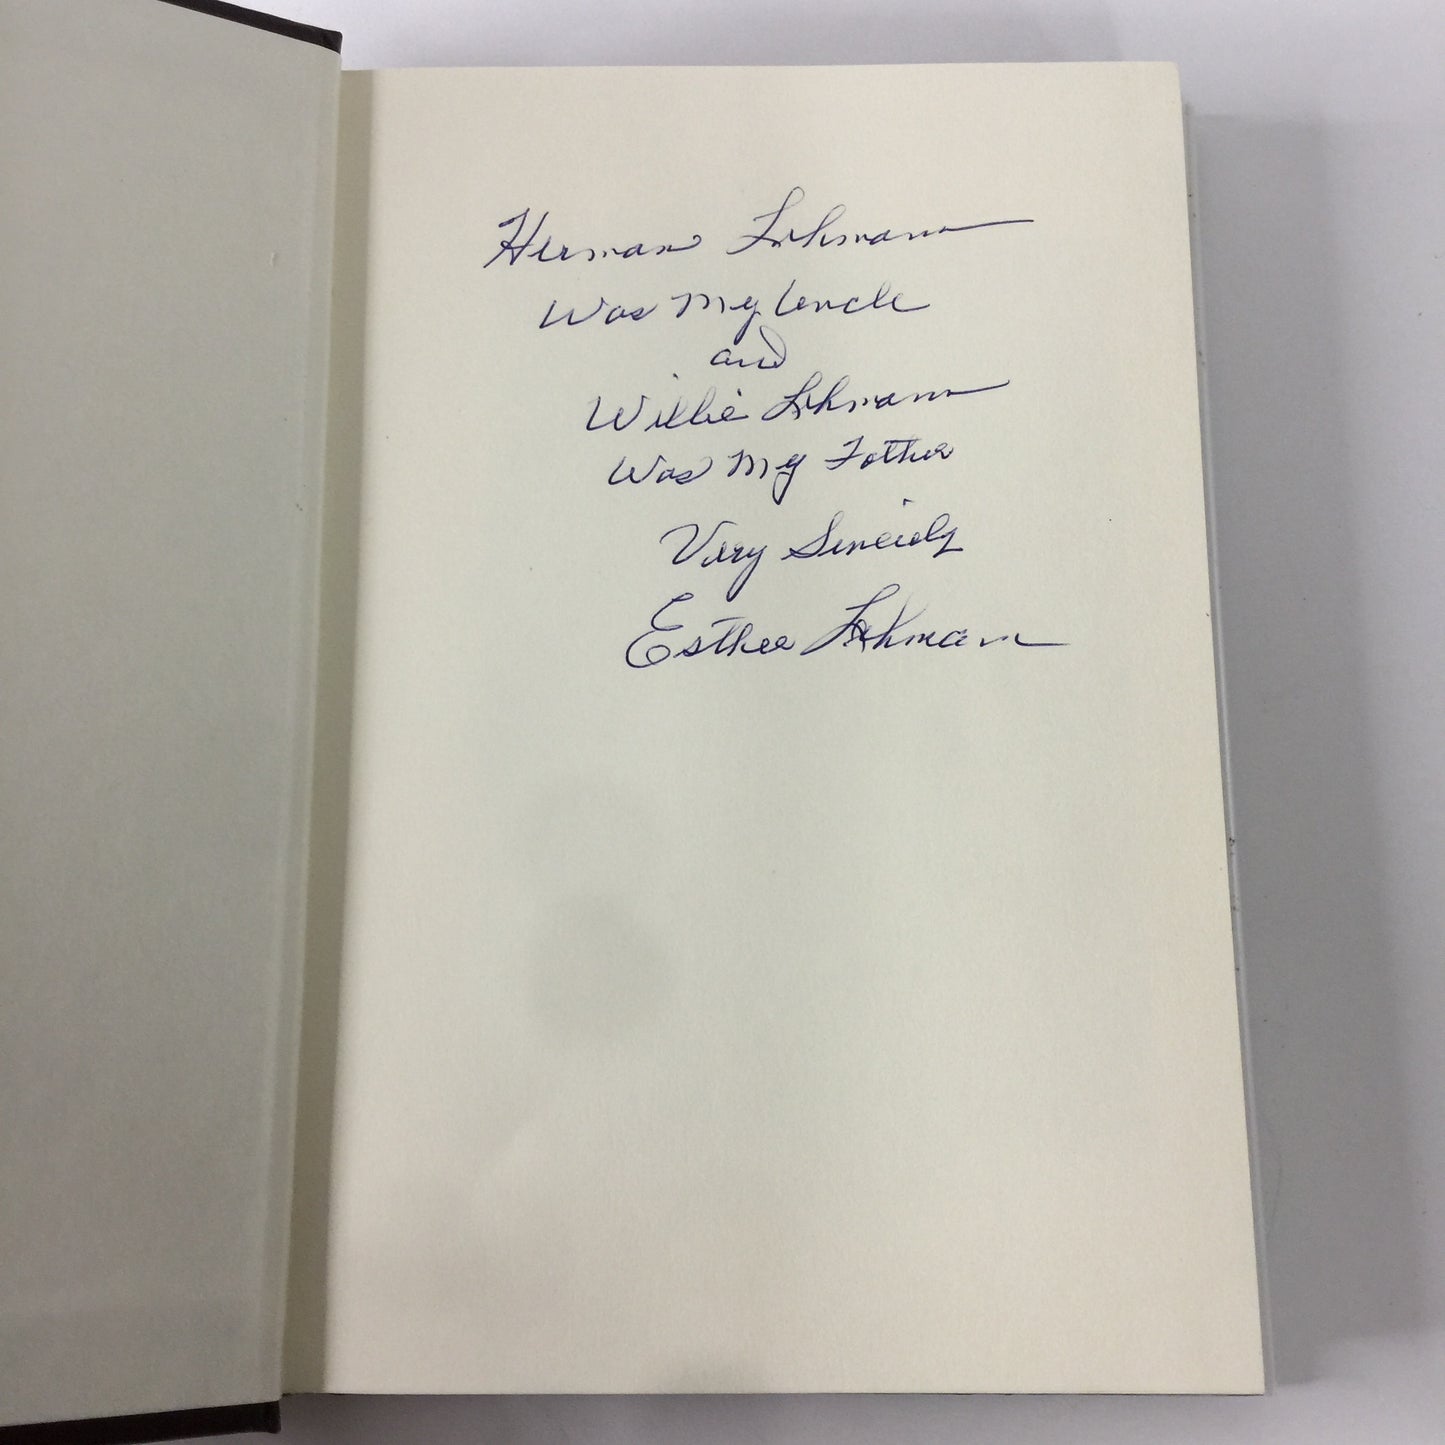 Herman Lehmann
Was My Uncle
and
Willie Lehmann
Was My Father
Very Sincerely
Esther Lehmann